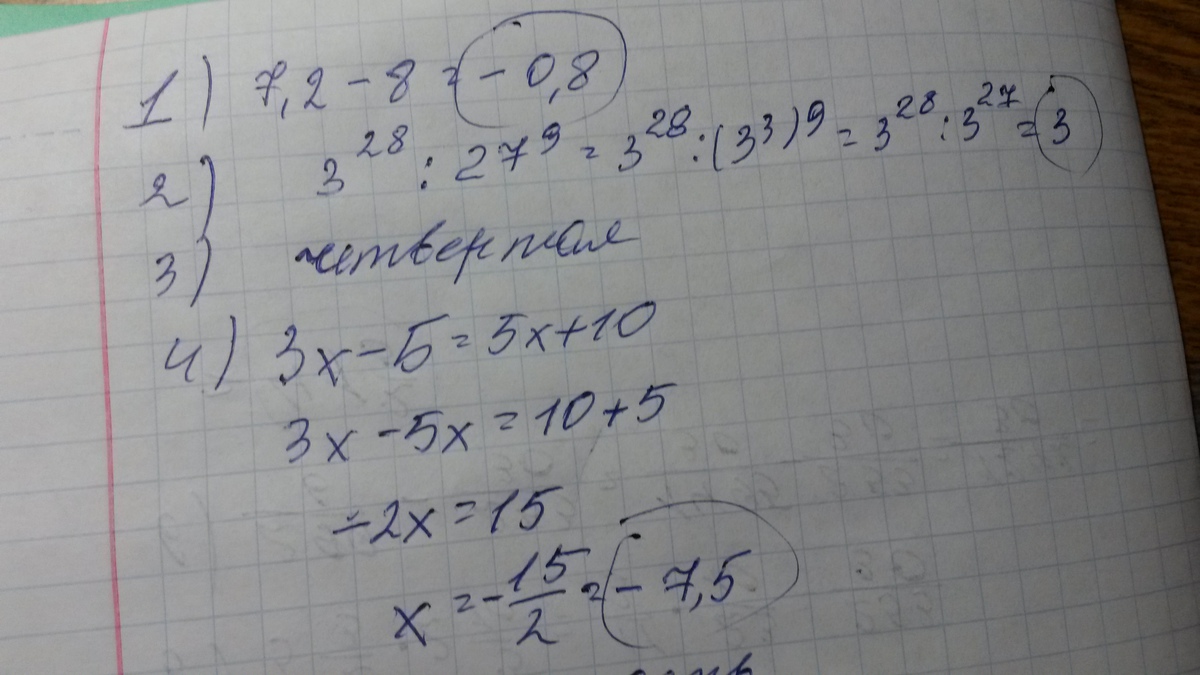 1) 7,2 - 8 = - 0,8
2) 3²⁸ : 27⁹ = 3²⁸ : (3³)⁹ = 3²⁸ : 3²⁷ = 3
3) четвертая
4) 3x - 5 = 5x + 10
3x - 5x = 10 + 5
-2x = 15
x = -15/2 = - 7,5